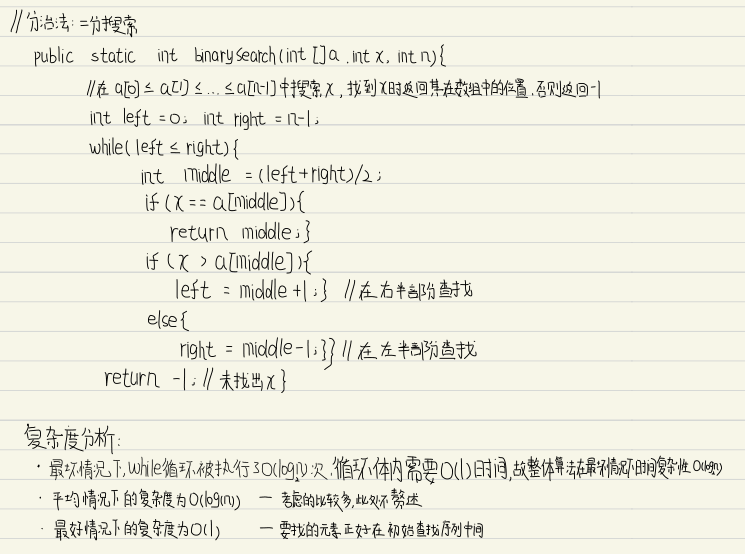 //分治法:二分搜索
public static int binarysearch(int []a,int x, int n){
//在a[0]≤a[1]≤...≤a[n-1]中搜索x,找到x时返回其在数组中的位置,否则返回-1
int left = 0; int right = n-1;
while(left ≤ right){
int middle = (left+right)/2;
if (x == a[middle]){
return middle;}
if (x > a[middle]){
left = middle+1;} //在右半部阶查找
else{
right = middle-1;}} //在左半部阶查找
return -1; //未找出x}
复杂度分析:
· 最坏情况下,while循环被执行了O(logn)次,循环体内需要O(1)时间,故整体算法在最坏情况下时间复杂性O(logn)
· 平均情况下的复杂度为O(log(n)) — 考虑的比较多,此处不赘述
· 最好情况下的复杂度为O(1) — 要找的元素正好在初始查找序列中间